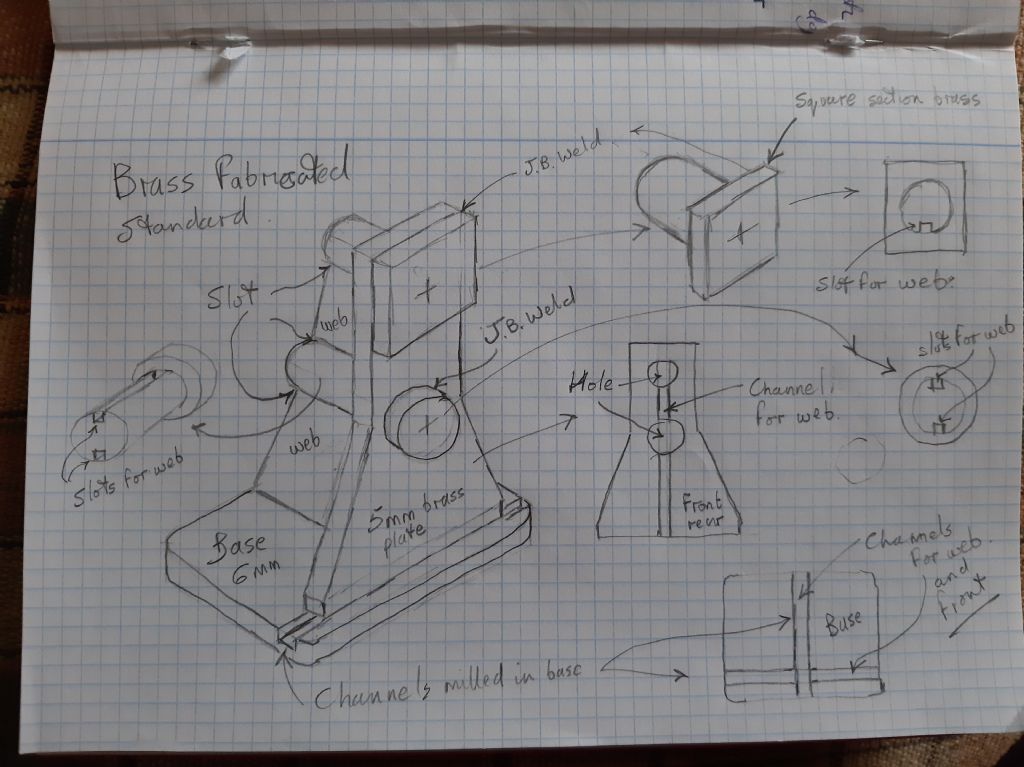 Brass Fabricated
Standard.
J.B. Weld
Square section brass
Slot
web
J.B. Weld
Slot for web.
slots for web
Hole
Channel
for web.
web
Slots for web
5mm brass
plate
Base
6mm
Front
rear
Channels
for web
and
front
Base
Channels milled in base